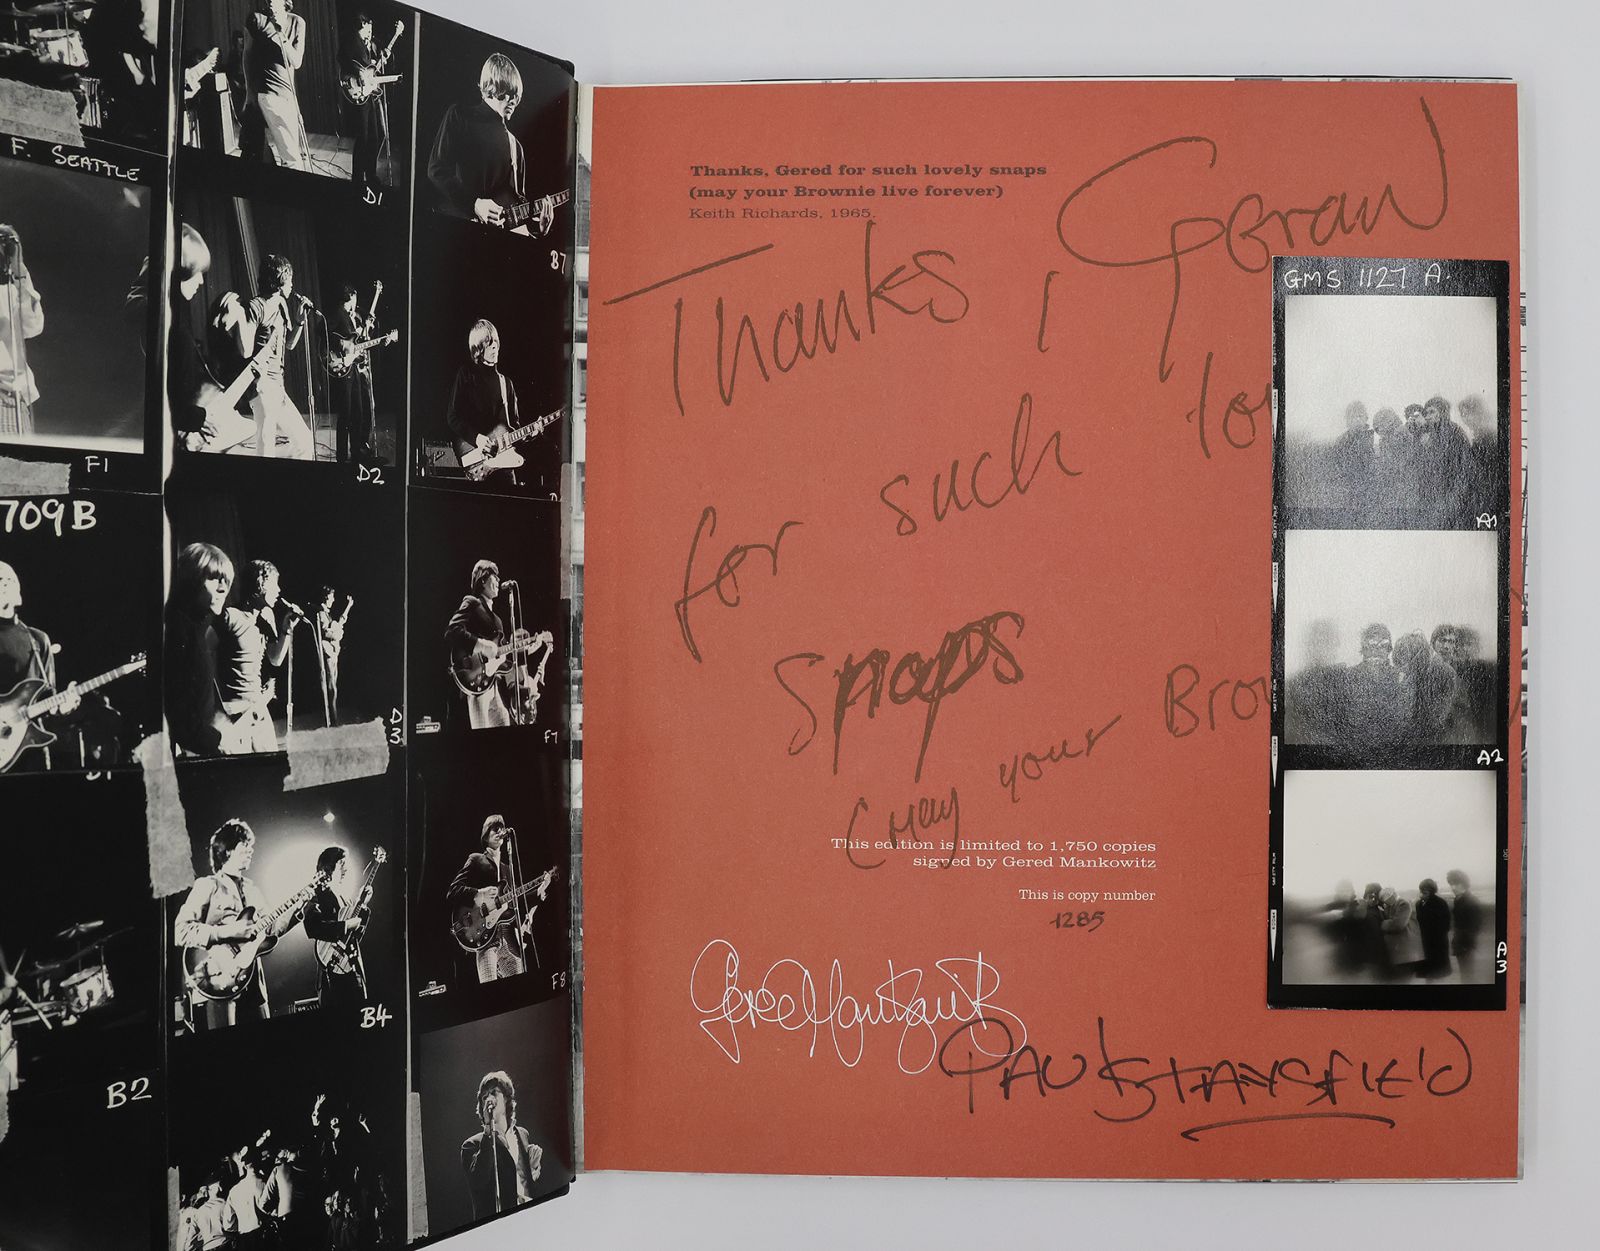 F. SEATTLE
D1
B7
F1
D2
709B
D3
F7
B4
F8
B2
Thanks, Gered for such lovely snaps
(may your Brownie live forever)
Keith Richards, 1965.
Thanks, Geraw
for such lo
snaps
(may your Bro
This edition is limited to 1,750 copies
signed by Gered Mankowitz
This is copy number
1285
Gered Mankowitz
PAUL STANSFIELD
GMS 1127 A.
A1
A2
A3